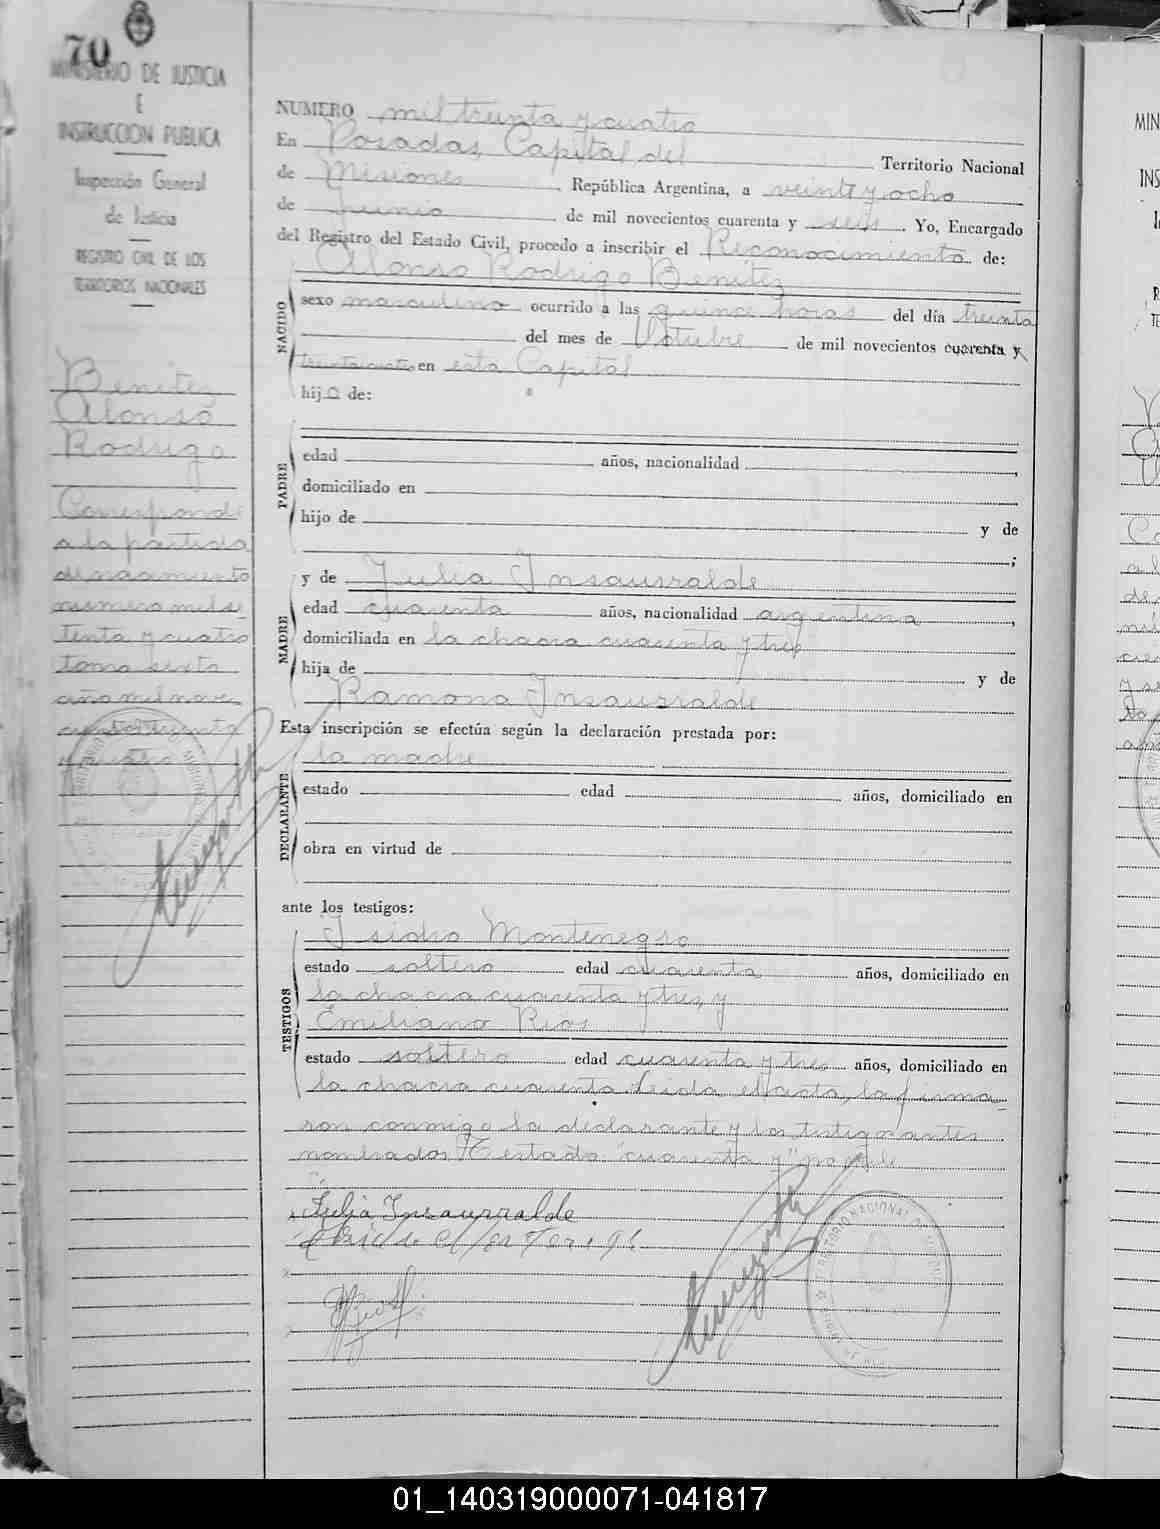 70
MINISTERIO DE JUSTICIA
E
INSTRUCCION PUBLICA
Inspección General
de Justicia
REGISTRO CIVIL DE LOS
TERRITORIOS NACIONALES
Benitez
Alonso
Rodrigo
Corresponde
a la partida
de nacimiento
numero mil se
tenta y cuatro
tomo sexto
año mil nove
cientos treinta
y cuatro
NUMERO mil treinta y cuatro
En Posadas, Capital del Territorio Nacional
de Misiones República Argentina, a veinte y ocho
de Junio de mil novecientos cuarenta y seis. Yo, Encargado
del Registro del Estado Civil, procedo a inscribir el Reconocimiento de:
Alonso Rodrigo Benitez
NACIDO
sexo masculino ocurrido a las quince horas del día treinta
del mes de Octubre de mil novecientos cuarenta y
en esta Capital
hijo de:
PADRE
edad años, nacionalidad ,
domiciliado en
hijo de y de
;
y de Julia Insaurralde
MADRE
edad cuarenta años, nacionalidad argentina,
domiciliada en la chacra cuarenta y tres
hija de y de
Ramona Insaurralde
Esta inscripción se efectúa según la declaración prestada por:
la madre
DECLARANTE
estado edad años, domiciliado en
obra en virtud de
ante los testigos:
Isidro Montenegro
TESTIGOS
estado soltero edad cuarenta años, domiciliado en
la chacra cuarenta y tres, y
Emiliano Rios
estado soltero edad cuarenta y tres años, domiciliado en
la chacra cuarenta. Leida el acta, la firma-
ron conmigo la declarante y los testigos antes
nombrados. Testado: "cuarenta y"
Julia Insaurralde
01_140319000071-041817